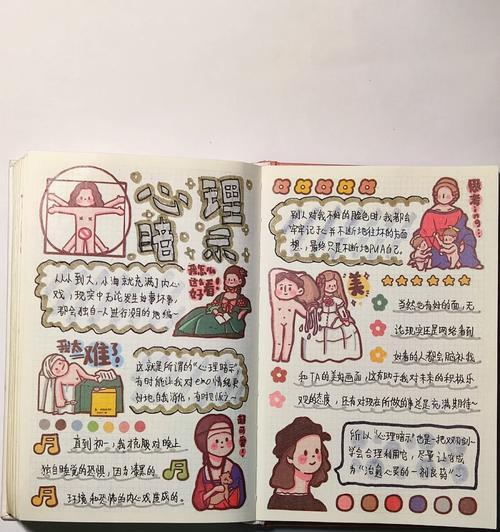 心理
暗示
从小到大,小海就充满了内心
戏,现实中无论发生好事坏事,
都会独自一人进行
我怎么
这么
好看!
我太难了!
这就是所谓的“心理暗示”
有时能让我对emo情绪更
好地自我消化,有时则饭了~
直到初一,我仍旧对晚上
独自睡觉的恐惧,因为漆黑的
环境和恐怖的内心戏造成的。
别人对我不好的脸色时,我都会
牢牢记于心并不断地往坏的方面
想,最终只是不断地PUA自己。
思考ing
美
当然也有好的面,无
论现实还是网络看到
好看的人都会脑补我
和TA的美好画面,这有助于我对未来的积极乐
观的态度,还有对现在所做的事还是充满期待~
所以“心理暗示”也是一把双刃剑~
学会合理利用它,尽量让它成
为“治愈心灵的一剂良药”~